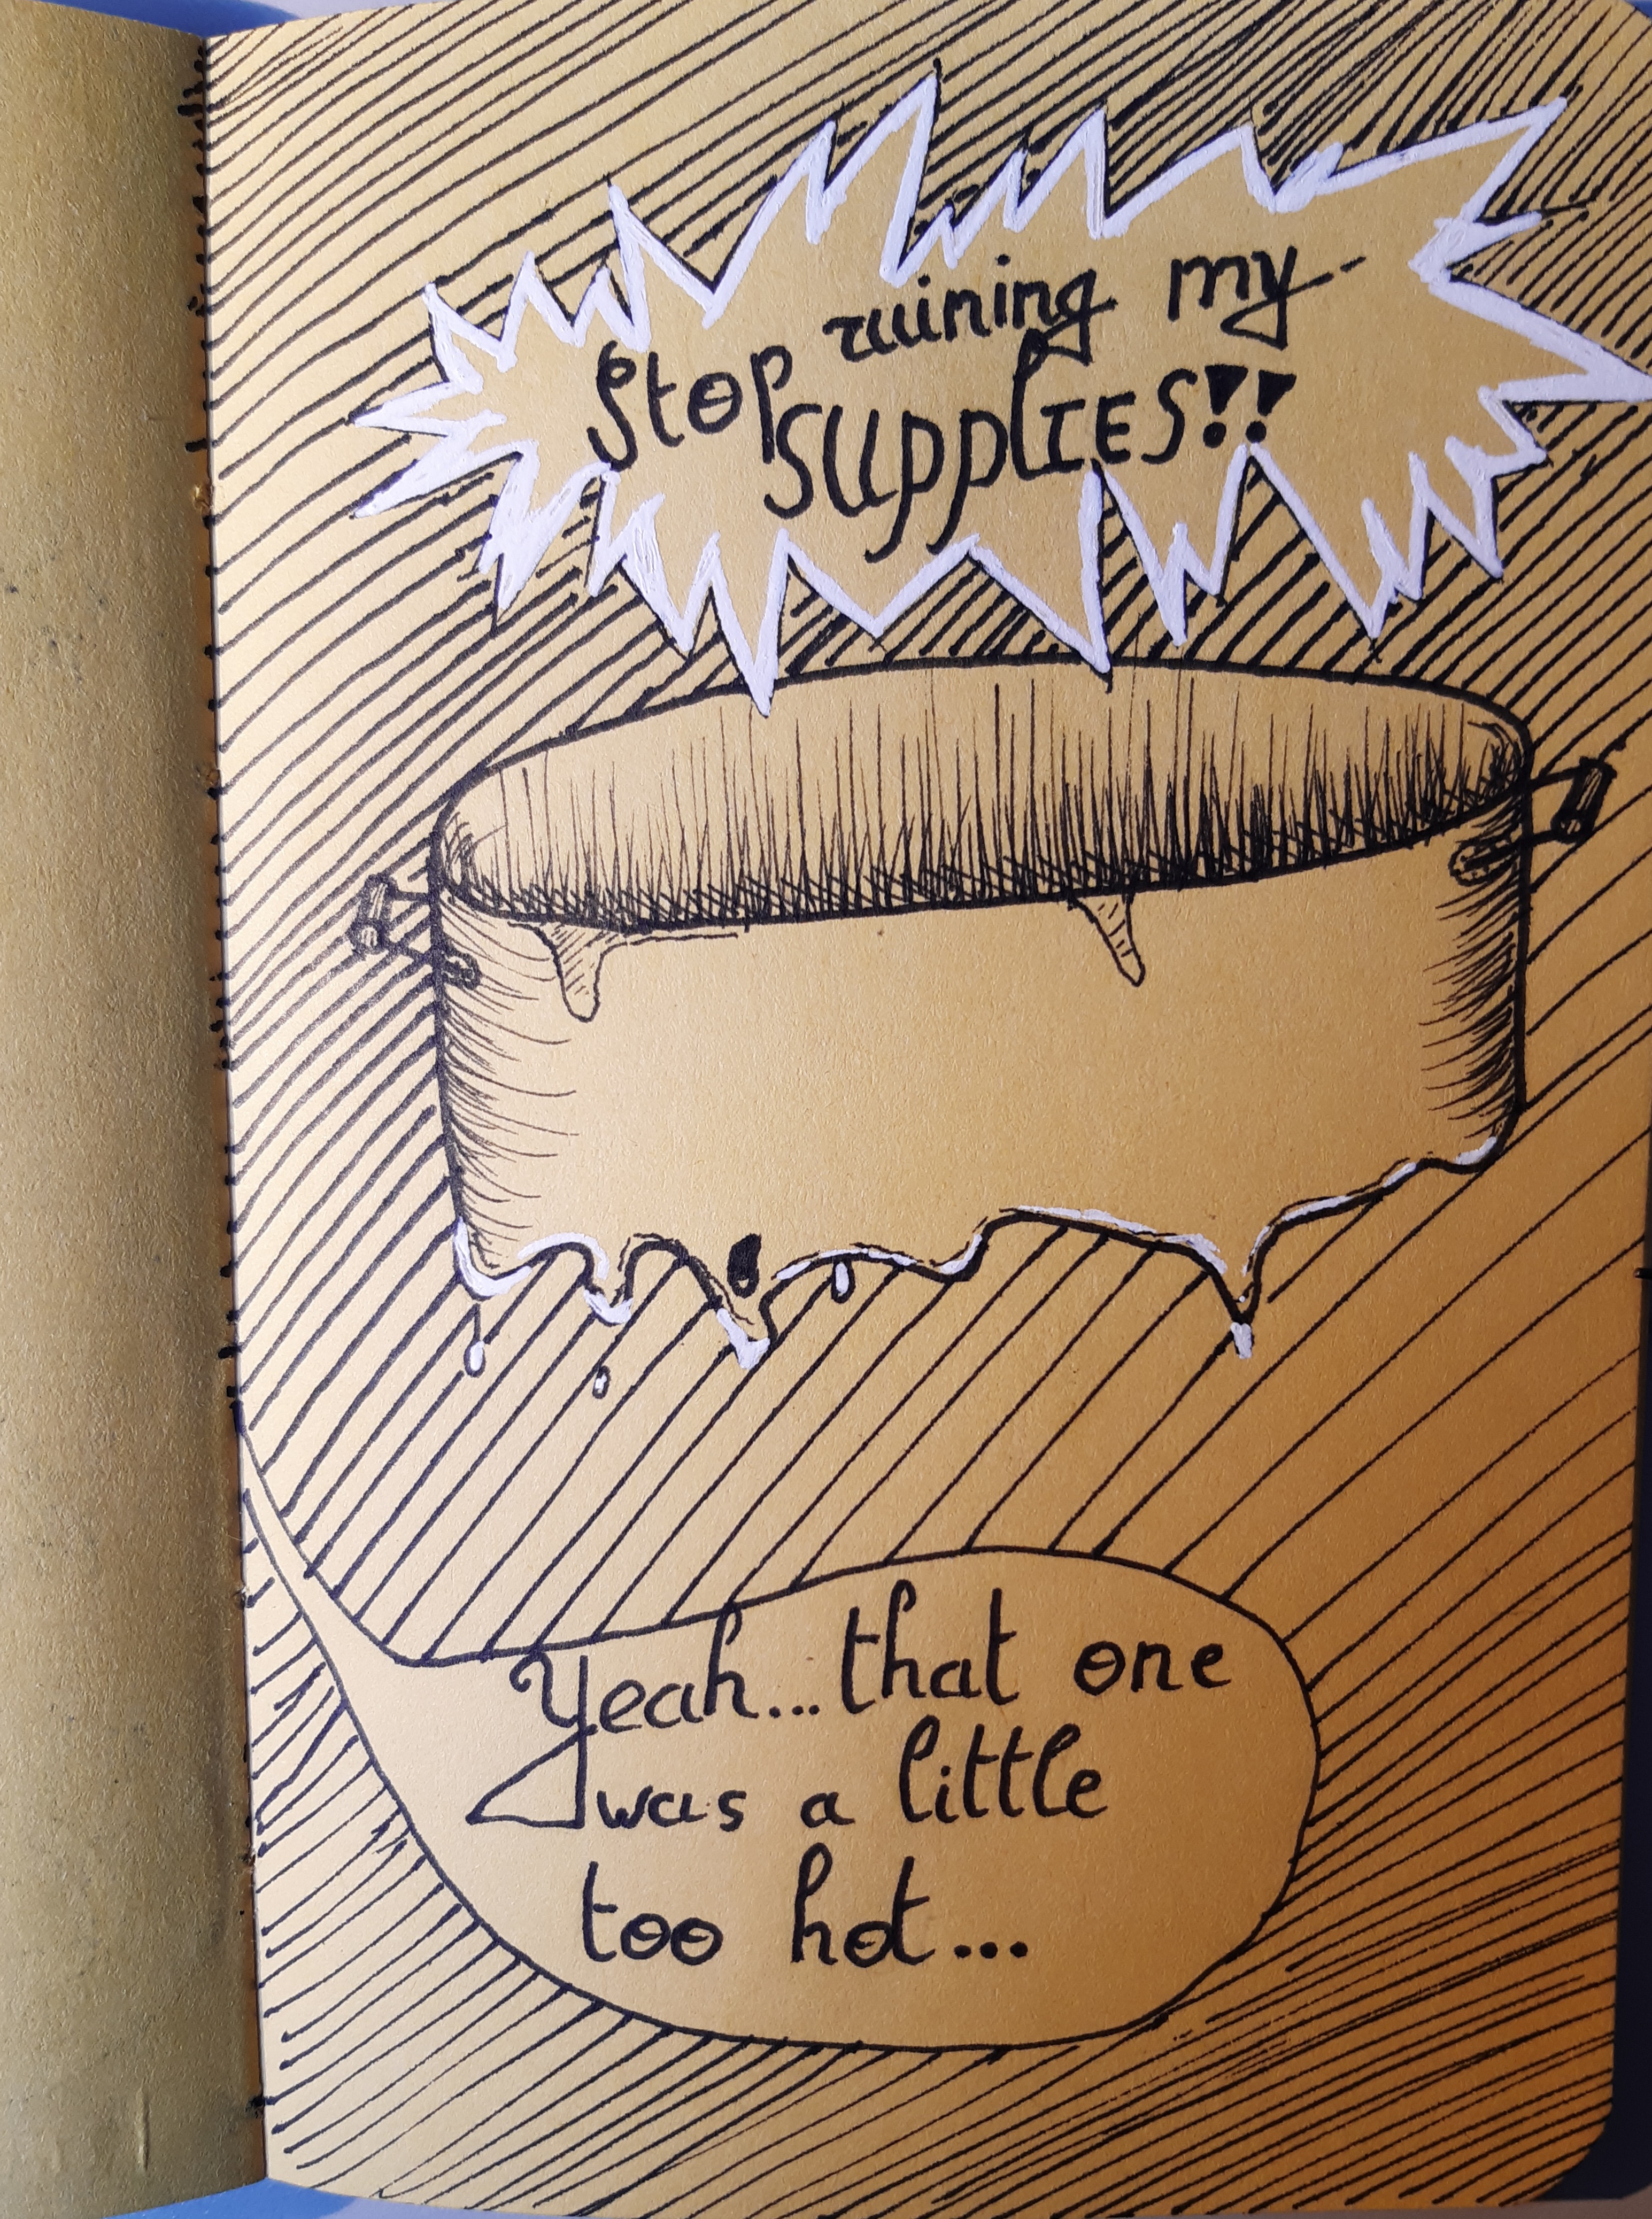 Stop ruining my
SUPPLIES!!
Yeah...that one
was a little
too hot...